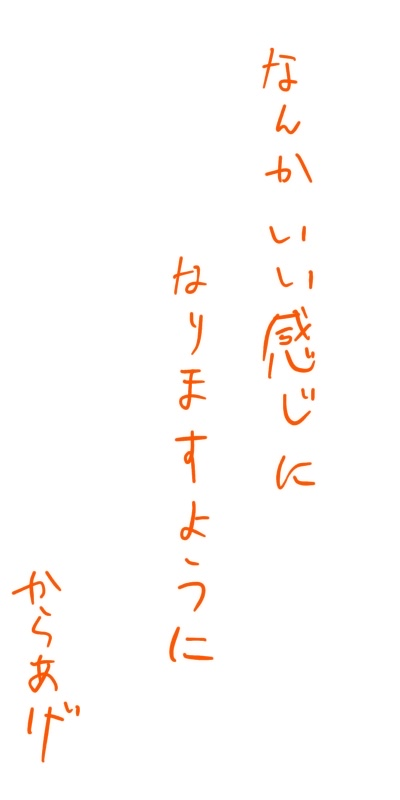 なんかいい感じに
なりますように
からあげ